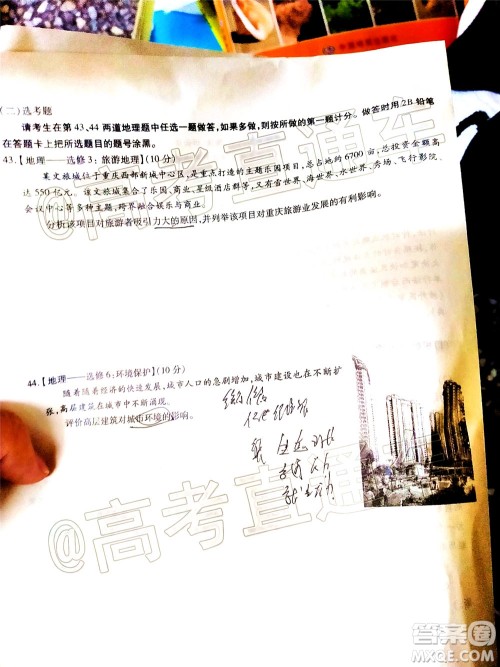 (二)选考题
请考生在第 43、44 两道地理题中任选一题做答,如果多做,则按所做的第一题计分。做答时用 2B 铅笔
在答题卡上把所选题目的题号涂黑。
43.【地理——选修 3:旅游地理】(10 分)
某文旅城位于重庆西部新城中心区,是重庆打造的主题乐园项目,总占地约 6700 亩,总投资高
达 550 亿元。该文旅城集合了乐园、商业、星级酒店群等,又有雪世界、海世界、水世界、飞行影院、
会议中心等多种主题,跨界融合娱乐与商业。
分析该项目对旅游者吸引力大的原因,并列举该项目对重庆旅游业发展的有利影响。
44.【地理——选修 6:环境保护】(10 分)
随着随着经济的快速发展,城市人口的急剧增加,城市建设也在不断扩
张,高层建筑在城市中不断涌现。
评价高层建筑对城市环境的影响。
@高考直通车
@高考直通车
答案圈
MXQE.COM